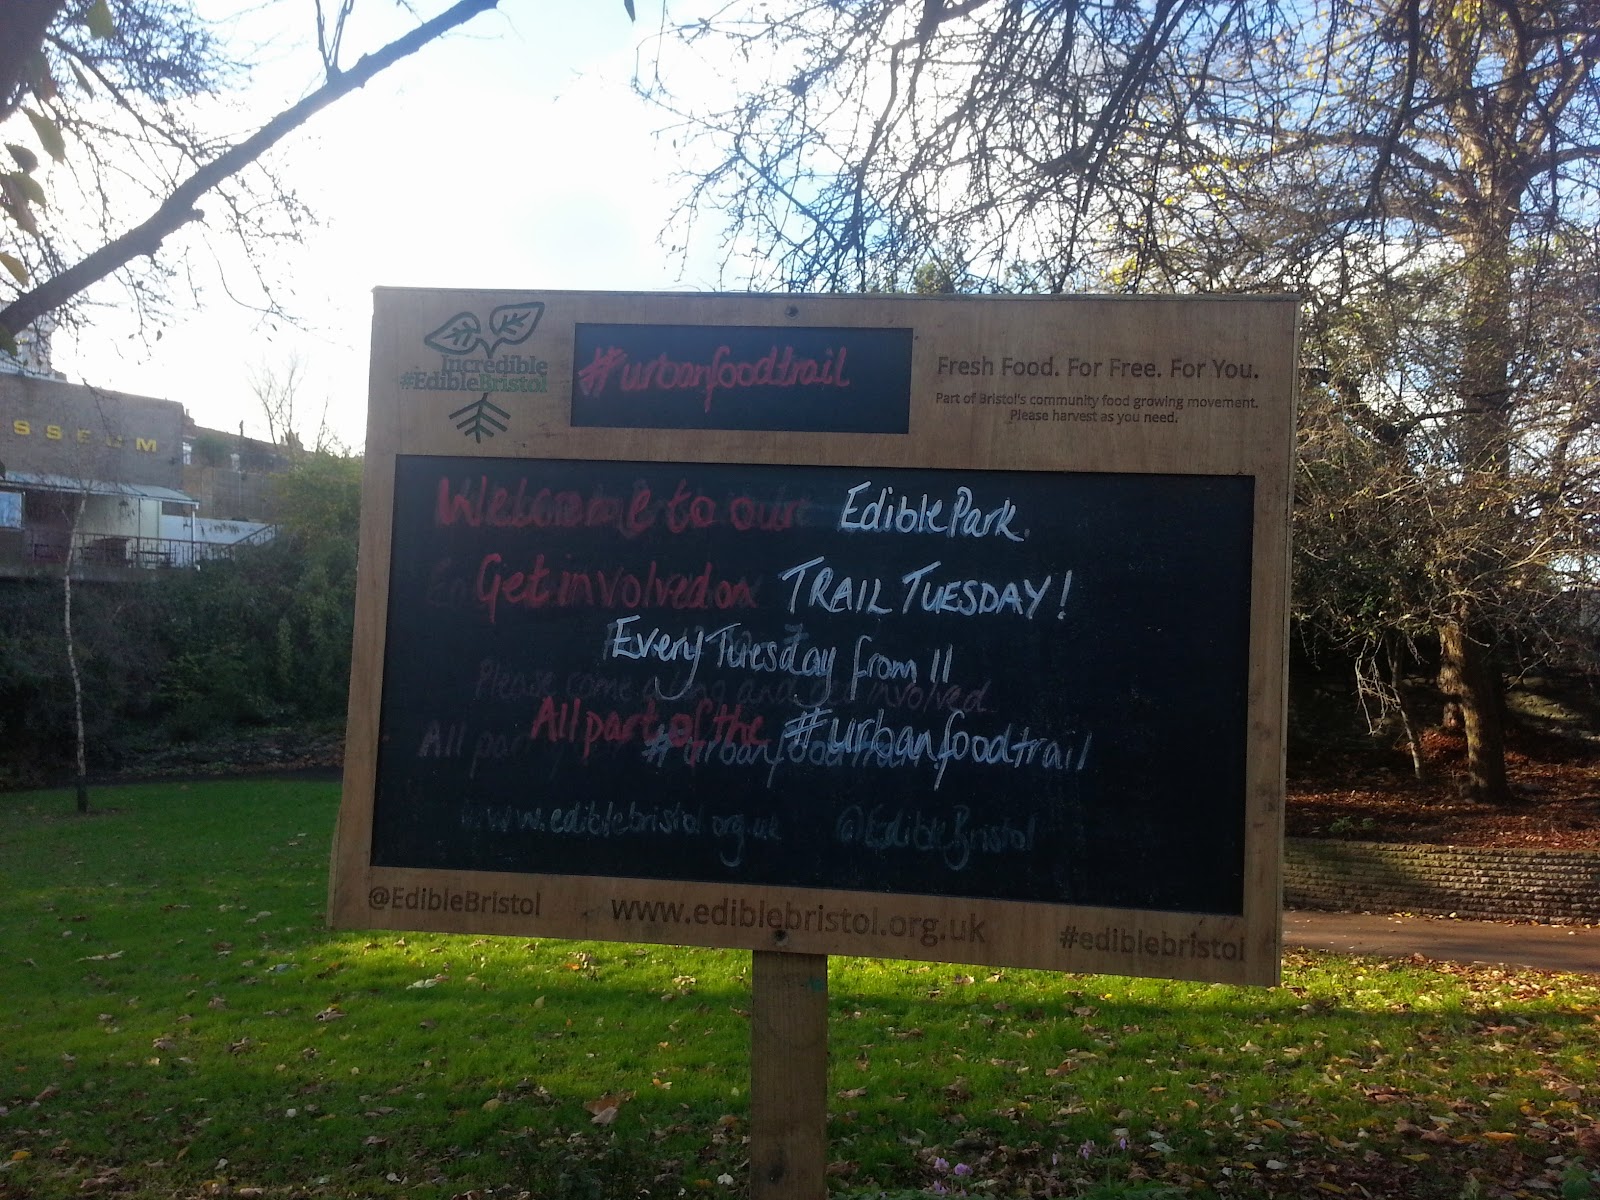 SSEUM
Incredible
#EdibleBristol
#urbanfoodtrail
Fresh Food. For Free. For You.
Part of Bristol's community food growing movement.
Please harvest as you need.
Welcome to our Edible Park.
Get involved on TRAIL TUESDAY!
Every Tuesday from 11
Please come along and get involved
All part of the #urbanfoodtrail
All part #urbanfoodtrail
www.ediblebristol.org.uk @EdibleBristol
@EdibleBristol www.ediblebristol.org.uk #ediblebristol